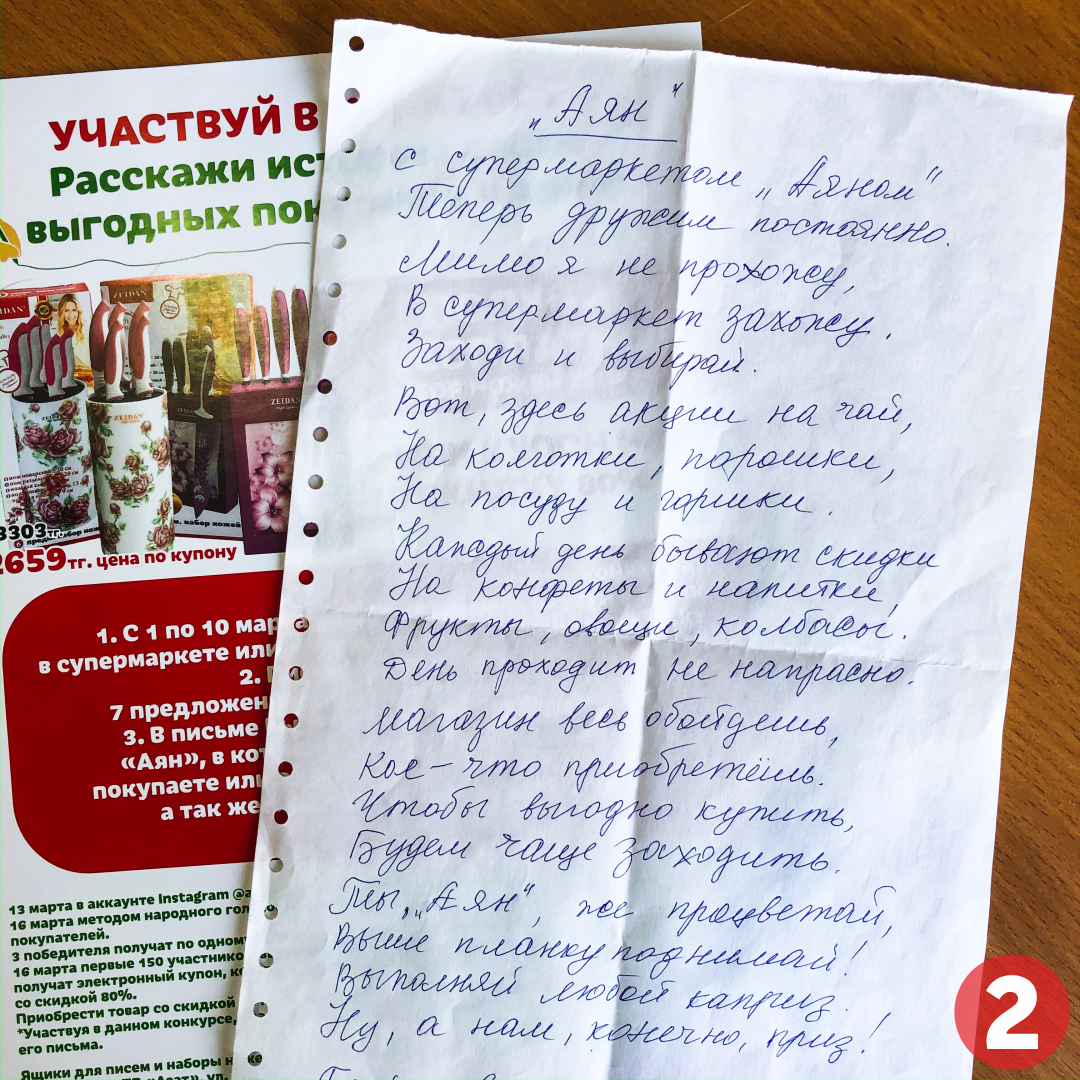 УЧАСТВУЙ В
Расскажи ист
выгодных пок
ZEIDAN
ZEIDAN
ZEIDAN
ZEIDAN
3303тг.
2659тг. цена по купону
1. С 1 по 10 мар
в супермаркете или
2.
7 предложен
3. В письме
«Аян», в кот
покупаете или
а так же
13 марта в аккаунте Instagram @a
16 марта методом народного гол
покупателей.
3 победителя получат по одному
16 марта первые 150 участнико
получат электронный купон, ко
со скидкой 80%.
Приобрести товар со скидкой
*Участвуя в данном конкурсе,
его письма.
Ящики для писем и наборы н
„Аян“
С супермаркетом „Аяном“
Теперь дружим постоянно.
Мимо я не прохожу,
В супермаркет захожу.
Заходи и выбирай.
Вот, здесь акции на чай,
На колготки, порошки,
На посуду и горшки.
Каждый день бывают скидки
На конфеты и напитки,
Фрукты, овощи, колбасы.
День проходит не напрасно.
Магазин весь обойдешь,
Кое-что приобретёшь.
Чтобы выгодно купить,
Будем чаще заходить.
Ты, „Аян“, же процветай,
Выше планку поднимай!
Выполняй любой каприз.
Ну, а нам, конечно, приз!
2